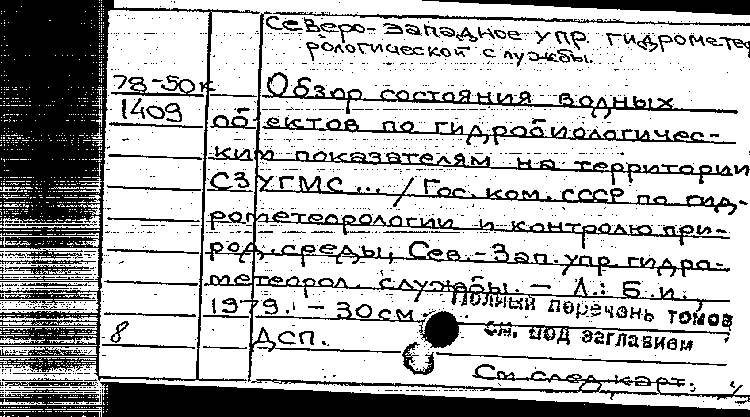 Северо-Западное упр. гидрометео
рологической службы.
78-50к Обзор состояния водных
1409 объектов по гидробиологичес-
ким показателям на территории
СЗ УГМС ... / Гос. ком. СССР по гид-
рометеорологии и контролю при-
род. среды, Сев.-Зап. упр. гидро-
метеорол. службы. — Л.: Б.и.,
1979. — 30 см.
Полный перечень томов
см. под заглавием
8 ДСП.
См. след. карт.